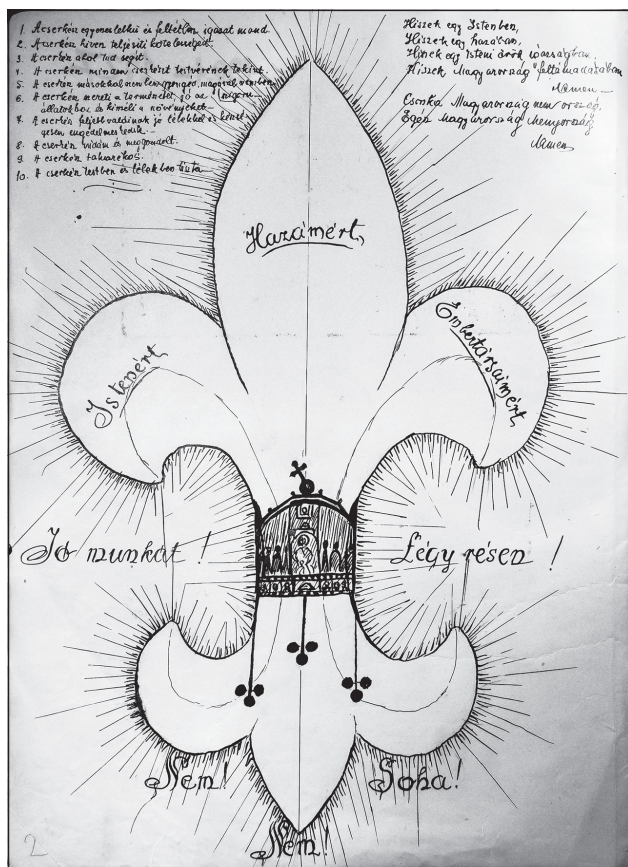 1. A cserkész egyeneslelkű és feltétlen igazat mond.
2. A cserkész híven teljesíti kötelességeit.
3. A cserkész ahol tud segít.
4. A cserkész minden cserkészt testvérének tekint.
5. A cserkész másokkal szemben gyengéd, magával szemben
6. A cserkész szereti a természetet, jó az
állatokhoz és kíméli a növényeket.
7. A cserkész feljebbvalóinak jó lélekkel és
engedelmeskedik.
8. A cserkész vidám és meggondolt.
9. A cserkész takarékos.
10. A cserkész testben és lélekben tiszta.
Hiszek egy Istenben,
Hiszek egy hazában,
Hiszek egy isteni örök igazságban
Hiszek Magyarország feltámadásában
Amen
Csonka Magyarország nem ország,
Egész Magyarország Menyország
Amen
Hazámért
Istenért
Embertársaimért
Jó munkát !
Légy résen !
Nem!
Soha!
Nem!
2